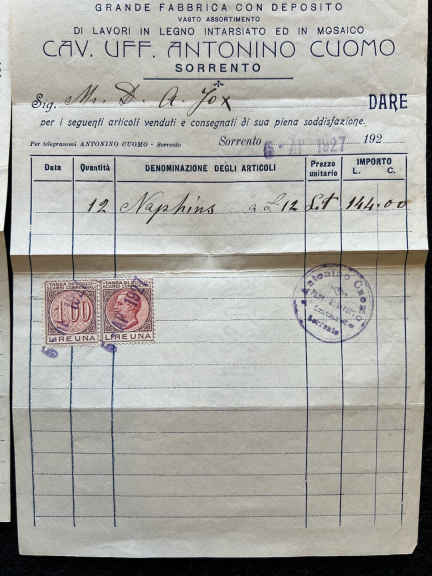 GRANDE FABBRICA CON DEPOSITO
VASTO ASSORTIMENTO
DI LAVORI IN LEGNO INTARSIATO ED IN MOSAICO
CAV. UFF. ANTONINO CUOMO
SORRENTO
Sig. Mr. D. A. Fox DARE
per i seguenti articoli venduti e consegnati di sua piena soddisfazione.
Per telegrammi ANTONINO CUOMO - Sorrento Sorrento 6 - AP 1927 192
Data Quantità DENOMINAZIONE DEGLI ARTICOLI Prezzo unitario IMPORTO L. C.
12 Naphins a L 12 Lit 144.00
1.00
LIRE UNA LIRE UNA
Antonino Cuomo
Sorrento